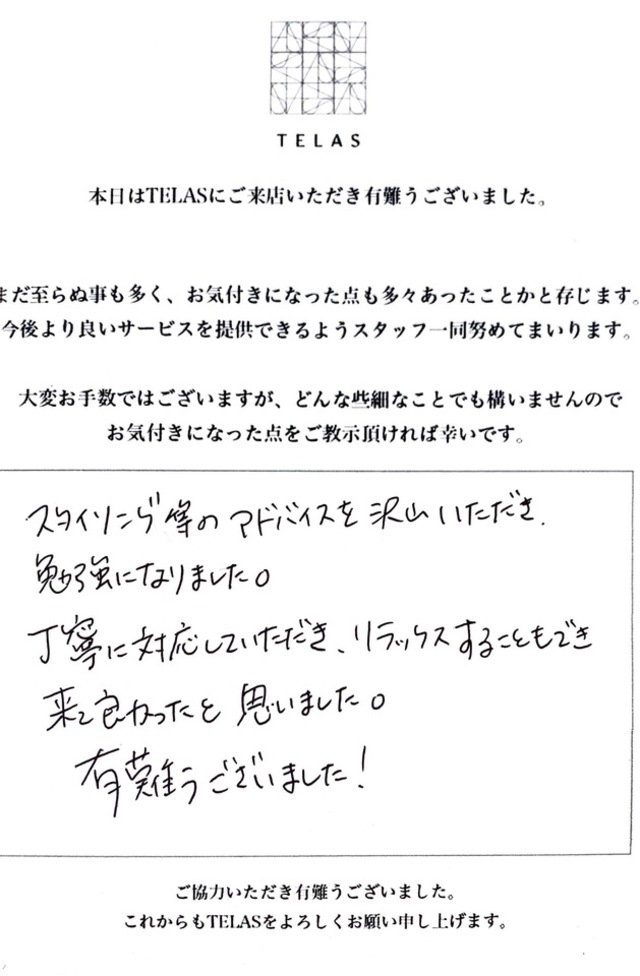 TELAS
本日はTELASにご来店いただき有難うございました。
まだ至らぬ事も多く、お気付きになった点も多々あったことかと存じます。
今後より良いサービスを提供できるようスタッフ一同努めてまいります。
大変お手数ではございますが、どんな些細なことでも構いませんので
お気付きになった点をご教示頂ければ幸いです。
スタイリング等のアドバイスを沢山いただき、
勉強になりました。
丁寧に対応していただき、リラックスすることもでき
来て良かったと思いました。
有難うございました!
ご協力いただき有難うございました。
これからもTELASをよろしくお願い申し上げます。